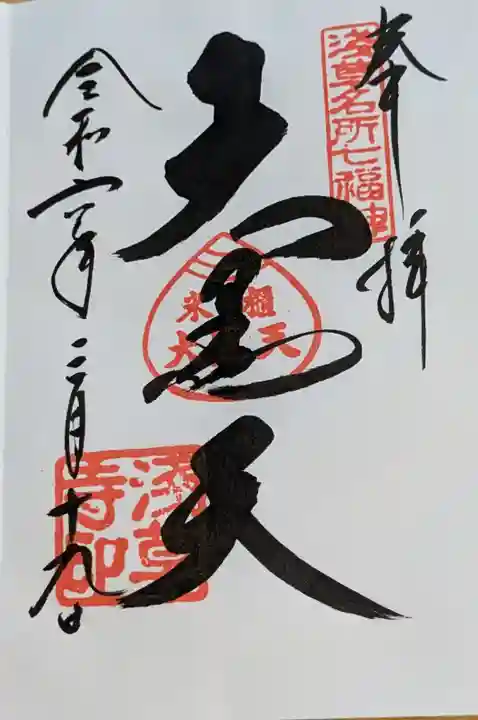 奉拝
浅草名所七福神
大黒天
米櫃
大黒天
令和六年二月十九日
浅草寺印